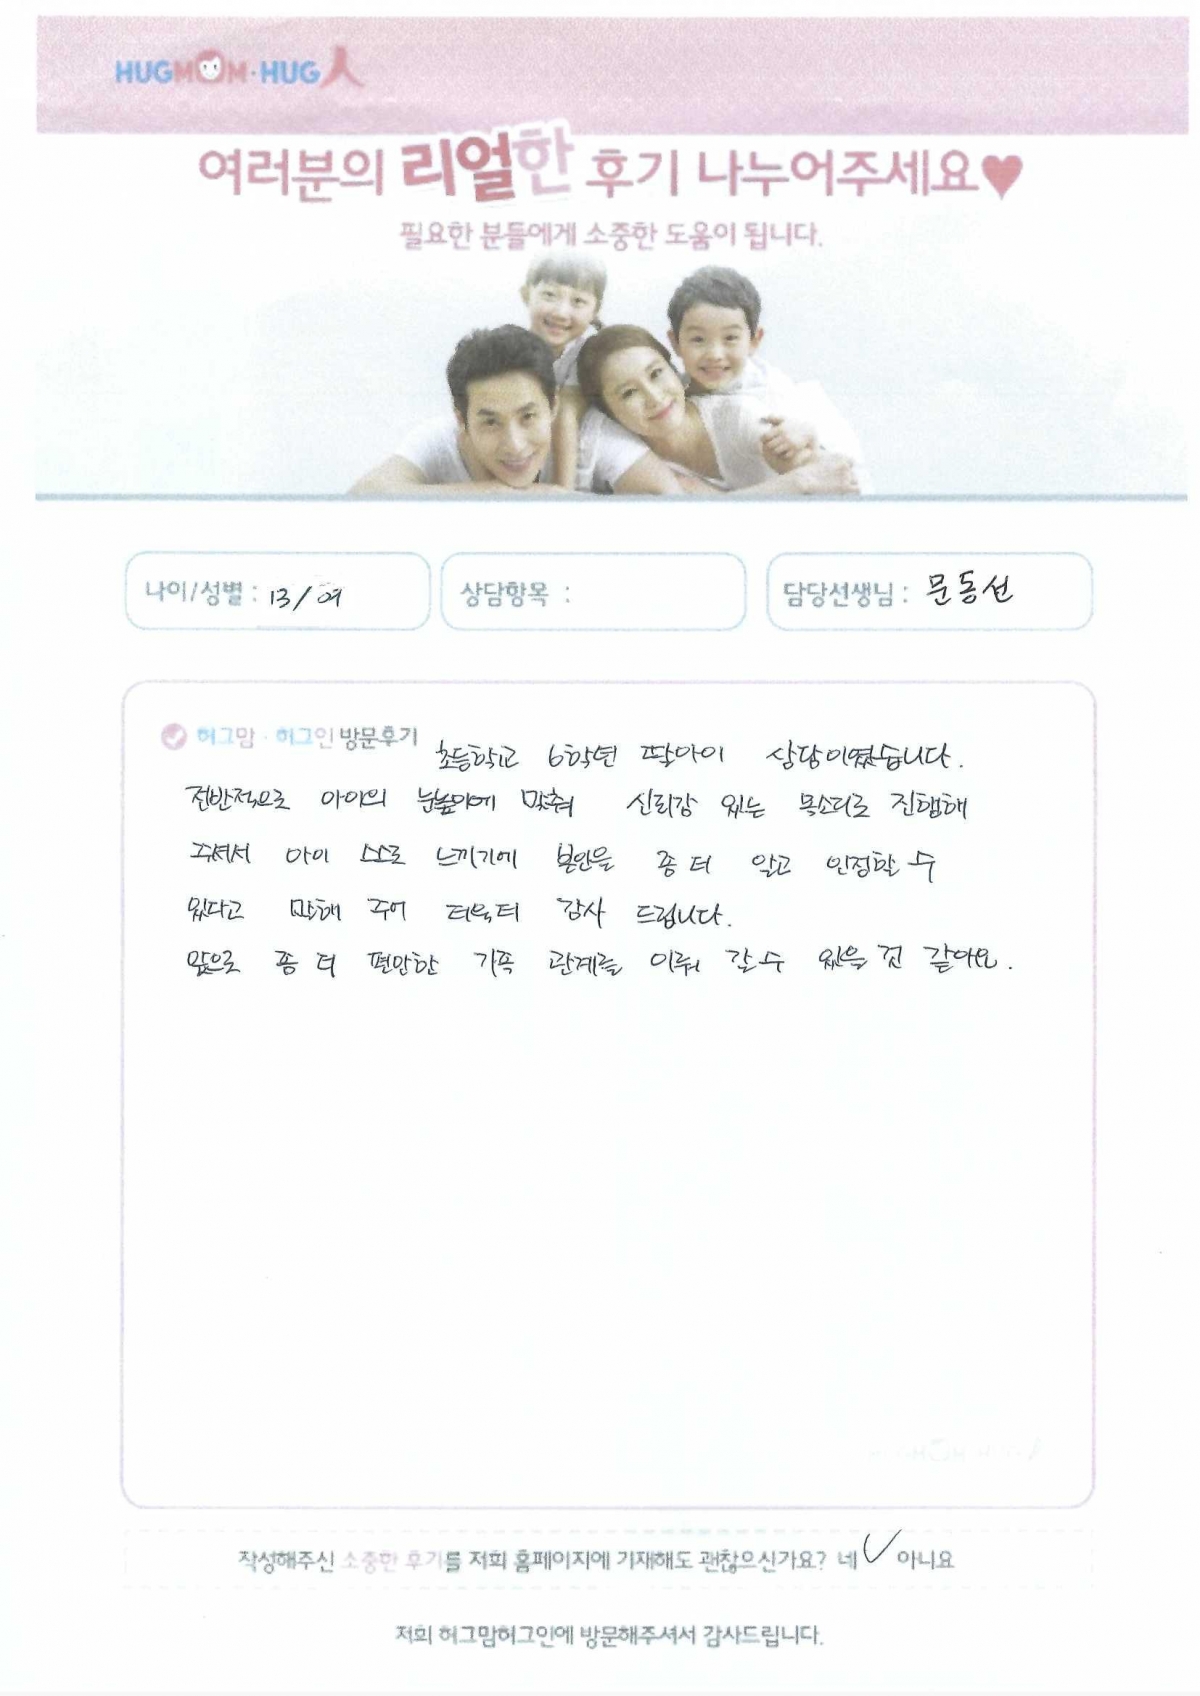 HUGMOM·HUG人
여러분의 리얼한 후기 나누어주세요♥
필요한 분들에게 소중한 도움이 됩니다.
나이/성별 : 13/여
상담항목 :
담당선생님 : 문동선
허그맘·허그인 방문후기 초등학교 6학년 딸아이 상담이였습니다.
전반적으로 아이의 눈높이에 맞춰 신뢰감 있는 목소리로 진행해
주셔서 아이 스스로 느끼기에 본인을 좀 더 알고 인정할 수
있다고 말해 주어 더욱더 감사 드립니다.
앞으로 좀 더 편안한 가족 관계를 이뤄 갈 수 있을 것 같아요.
작성해주신 소중한 후기를 저희 홈페이지에 기재해도 괜찮으신가요? 네 ✓ 아니요
저희 허그맘허그인에 방문해주셔서 감사드립니다.